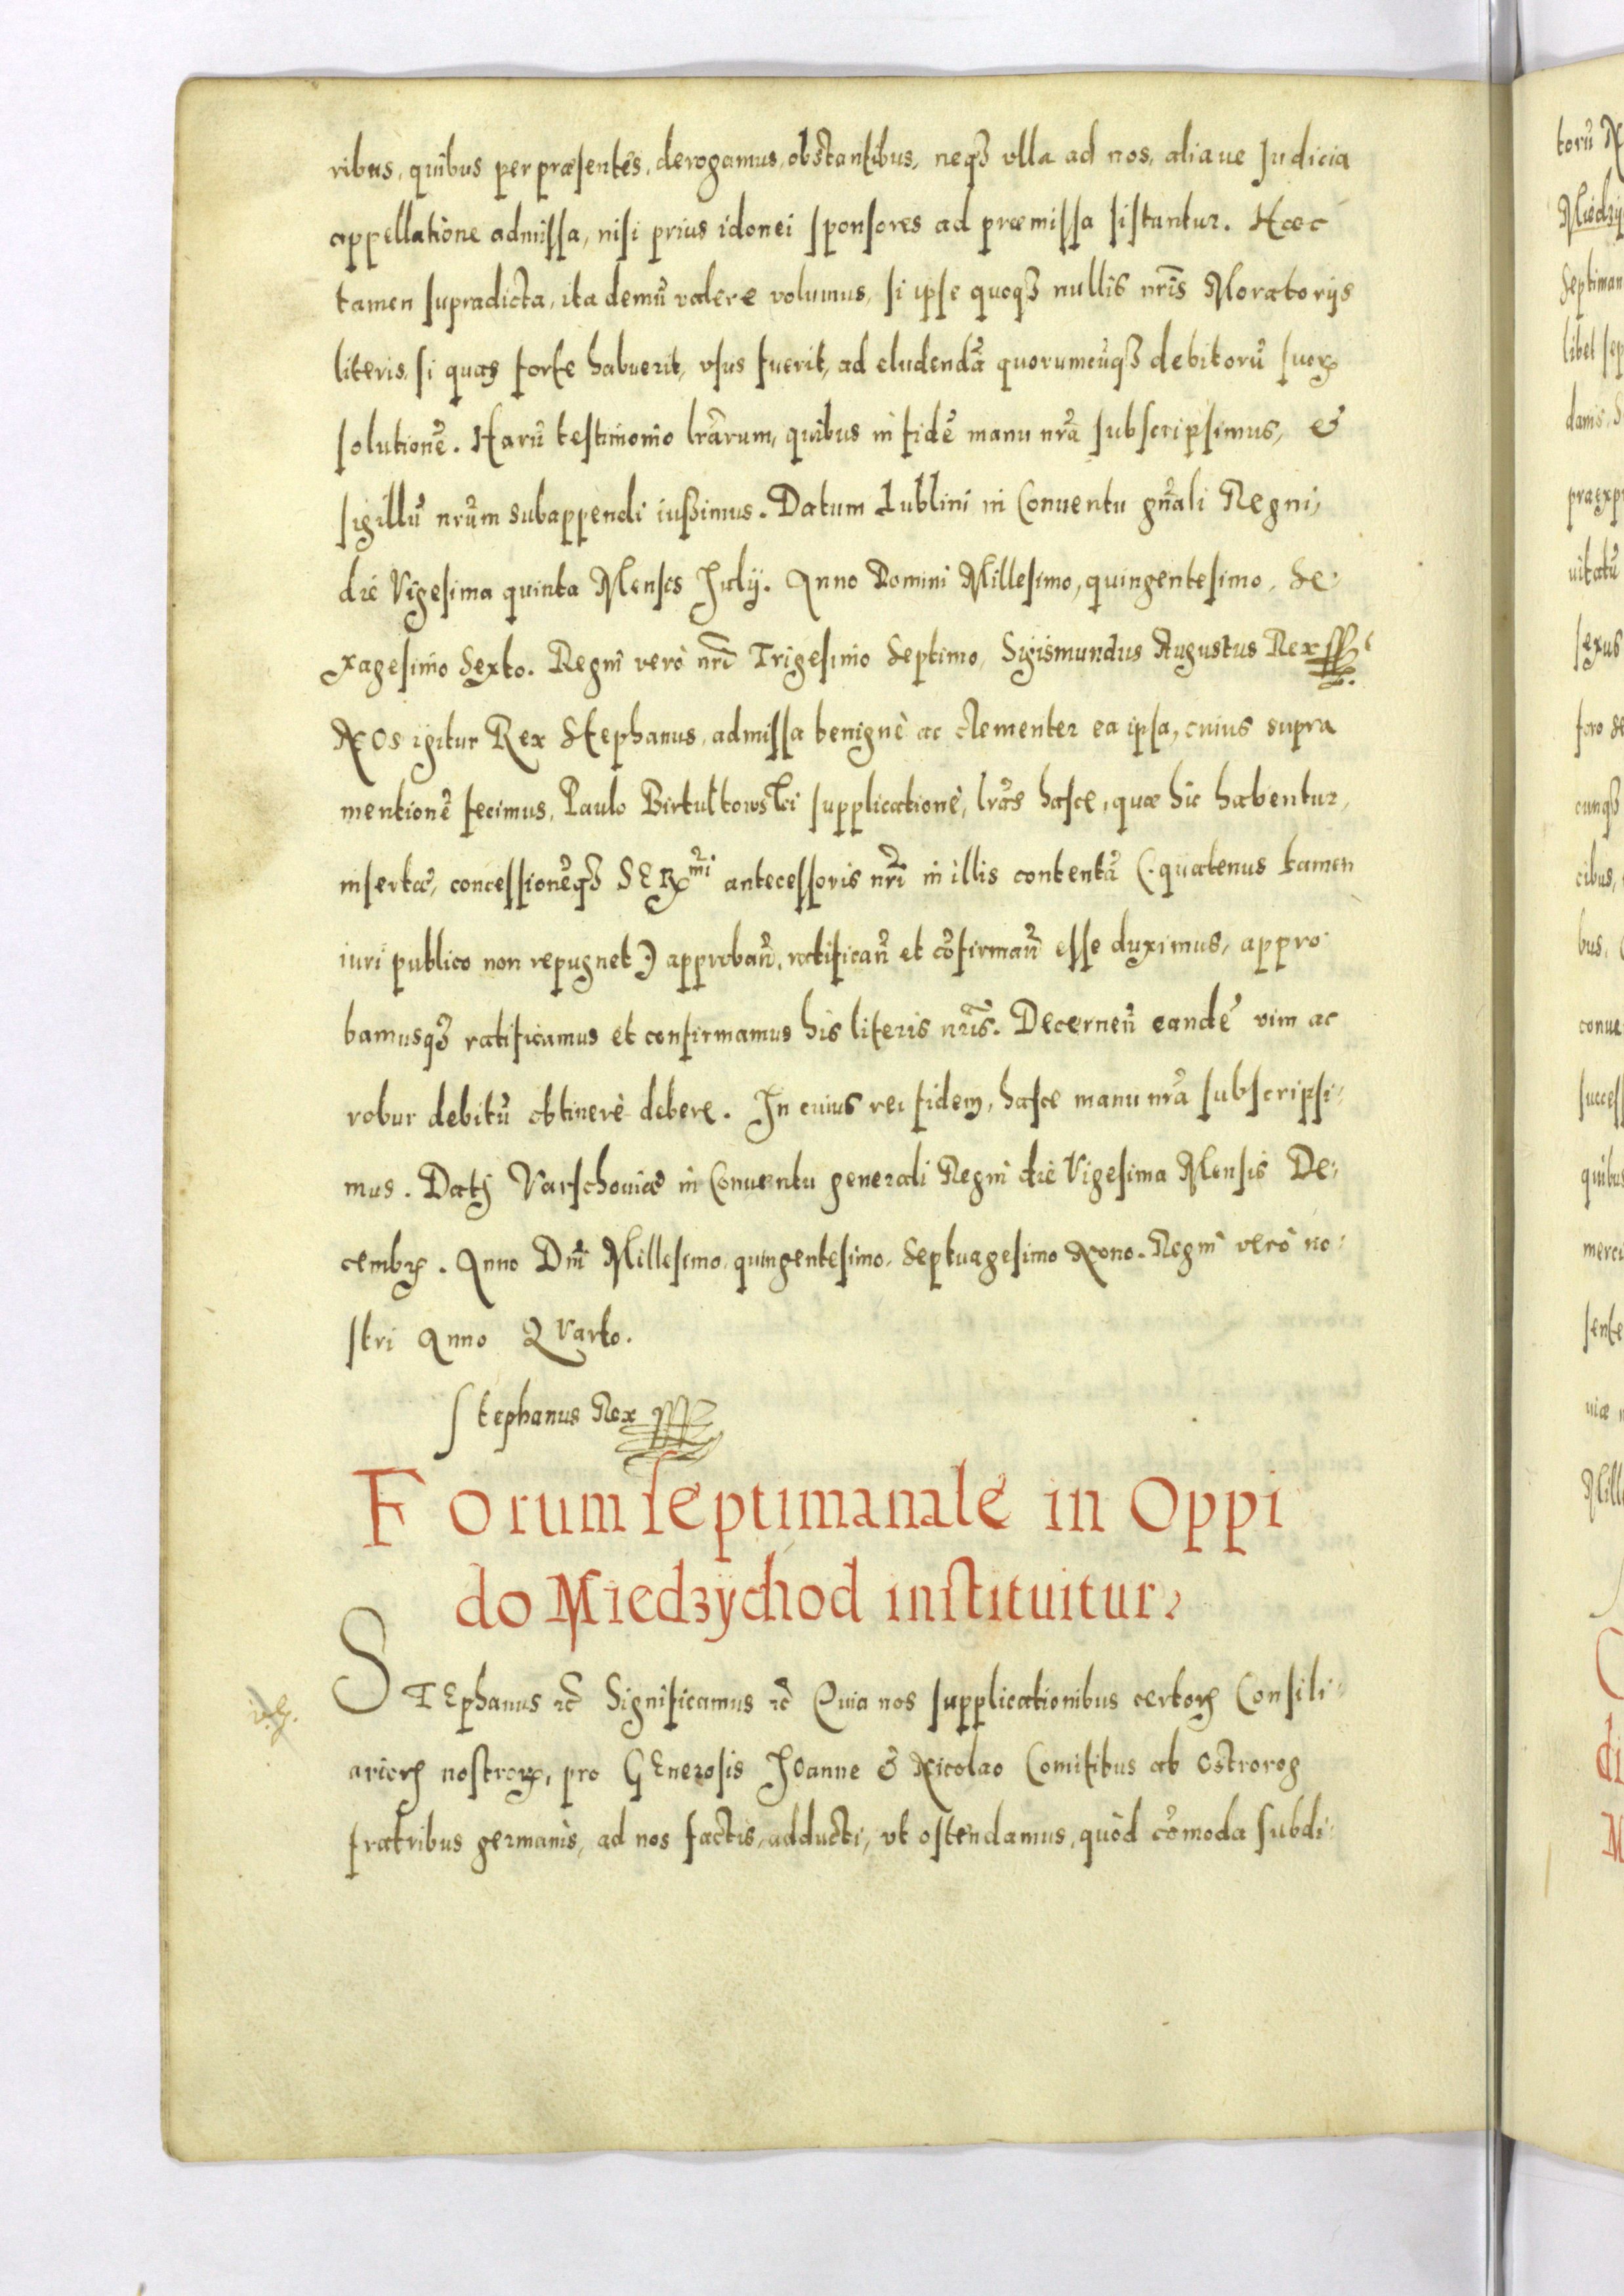 ribus, quibus per præsentes, derogamus, obstantibus, neqꝫ vlla ad nos, aliaue Judicia
appellatione admissa, nisi prius idonei sponsores ad præmissa sistantur. Hæc
tamen supradicta, ita demū valere volumus, si ipse quoqꝫ nullis nr̄is Moratorijs
literis, si quas forte habuerit, vsus fuerit, ad eludendā quorumcūqꝫ debitorū suoꝝ
solutionē. Harū testimonio lr̄arum, quibus in fidē manu nr̄a subscripsimus, &
sigillū nr̄um subappendi iussimus. Datum Lublini in Conuentu gn̄ali Regni,
die Vigesima quinta Mensis Julij. Anno Domini Millesimo, quingentesimo, Se:
xagesimo Sexto. Regni verò nr̄i Trigesimo Septimo, Sigismundus Augustus Rex
Nos igitur Rex Stephanus, admissa benignè ac clementer ea ipsa, cuius supra
mentionē fecimus, Paulo Birtułtowski supplicationè, lr̄as hasce, quæ hic habentur,
insertas, concessionēqꝫ SERmi antecessoris nr̄i in illis contentā (: quatenus tamen
iuri publico non repugnet :) approban̄, ratifican̄ et cōfirman̄ esse duximus, appro
bamusqꝫ ratificamus et confirmamus his literis nr̄is. Decernen̄ eandē vim ac
robur debitū obtinerè debere. In cuius rei fidem, hasce manu nr̄a subscripsi:
mus. Datꝫ Varschouiæ in Conuentu generali Regni die Vigesima Mensis De:
cembꝝ. Anno Dn̄i Millesimo, quingentesimo, Septuagesimo Nono. Regni verò no:
stri Anno QVarto.
Stephanus Rex
Forum septimanale in Oppi
do Miedzÿchod instituitur
STEphanus ꝛc̄ Significamus ꝛc̄ Quia nos supplicationibus certoꝝ Consili:
arioꝝ nostroꝝ, pro GEnerosis JOanne & Nicolao Comitibus ab Ostrorog
fratribus germanis, ad nos factis, adducti, vt ostendamus, quòd cōmoda subdi: